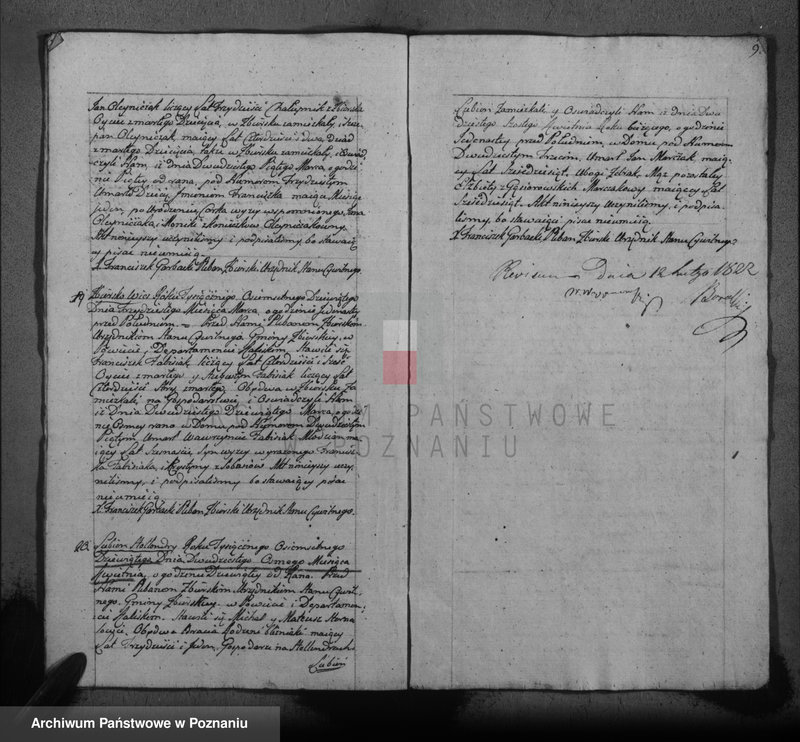 Jan Oleyniczak liczący Lat Trzydzieści Chałupnik z Zbierska
Oyciec zmarłego Dziecięcia, w Zbiersku zamieszkały, i Szcze
pan Oleyniczak maiący Lat Czterdzieści i dwa Dziad
zmarłego Dziecięcia także w Zbiersku zamieszkały, i Oświad
czyli Nam, iż Dnia Dwudziestego Piątego Marca, o godzi
nie Piątey od rana, pod Numerem Trzydziestym
Umarło Dziecię Imieniem Franciszka maiąca Miesiąc
jeden, po Urodzeniu, Córka wyży wspomnionego, Jana
Oleyniczaka, Oleyniczakowny
Akt niniejszy uczyniliśmy i podpisaliśmy bo stawaią
cy pisać nieumieią
X. Franciszek Garbacki Pleban Zbierski Urzędnik Stanu Cywilnego.
19 Zbiersko wieś Roku Tysiącznego Osiemsetnego Dziewiątego
Dnia Trzydziestego Miesiąca Marca, o godzinie jedenastey
przed Południem. Przed Nami Plebanem Zbierskim
Urzędnikiem Stanu Cywilnego Gminy Zbierskiey, w
Powiecie i Departamencie Kaliskim, Stawili się
Franciszek Fabisiak liczący Lat Czterdzieści i Sześć
Oyciec zmarłego y Fabisiak liczący Lat
Czterdzieści Stry zmarłego Obydwa w Zbiersku Za
mieszkali na Gospodarstwie, i Oświadczyli Nam
iż Dnia Dwudziestego Dziewiątego Marca, o godzi
nie Osmey rano w Domu pod Numerem Dwudziestym
Piątym Umarł Wawrzyniec Fabisiak Młodzian ma
iący Lat Szesnaście, Syn wyży wyrażonego Francisz
ka Fabisiaka, i Krystyny z Sobanów Akt niniejszy uczy
niliśmy, i podpisaliśmy bo stawaiący pisać
nieumieią
X. Franciszek Garbacki Pleban Zbierski Urzędnik Stanu Cywilnego.
20. Lubień Hollendry Roku Tysiącznego Osiemsetnego
Dziewiątego Dnia Dwudziestego Osmego Miesiąca
Kwietnia, o godzinie Dziewiątey od Rana. Przed
Nami Plebanem Zbierskim Urzędnikiem Stanu Cywil
nego. Gminy Zbierskiey w Powiecie i Departamen
cie Kaliskim. Stawili się Michał y Mateusz
Obydwa Bracia Rodzeni maiący
Lat Trzydzieści i Jeden, Gospodarze na Hollendrach
Lubień
9
Lubień Zamieszkali y Oświadczyli Nam iż Dnia Dwu
dziestego Szóstego Kwietnia Roku bieżącego, o godzinie
Jedenastey przed Południem, w Domu pod Numerem
Dwudziestym Trzecim, Umarł Jan Marczak maią
cy Lat Sześćdziesiąt, Ubogi Żebrak, Mąż pozostałey
Elżbiety z Gąsiorowskich Marczakowy maiącey Lat
Sześćdziesiąt. Akt niniejszy Uczyniliśmy, i podpisa
liśmy, bo stawaiący pisać nieumieią.
X Franciszek Garbacki Pleban Zbierski Urzędnik Stanu Cywilnego
Dnia 12 lutego 1822
ARCHIWUM PAŃSTWOWE
W POZNANIU
Archiwum Państwowe w Poznaniu